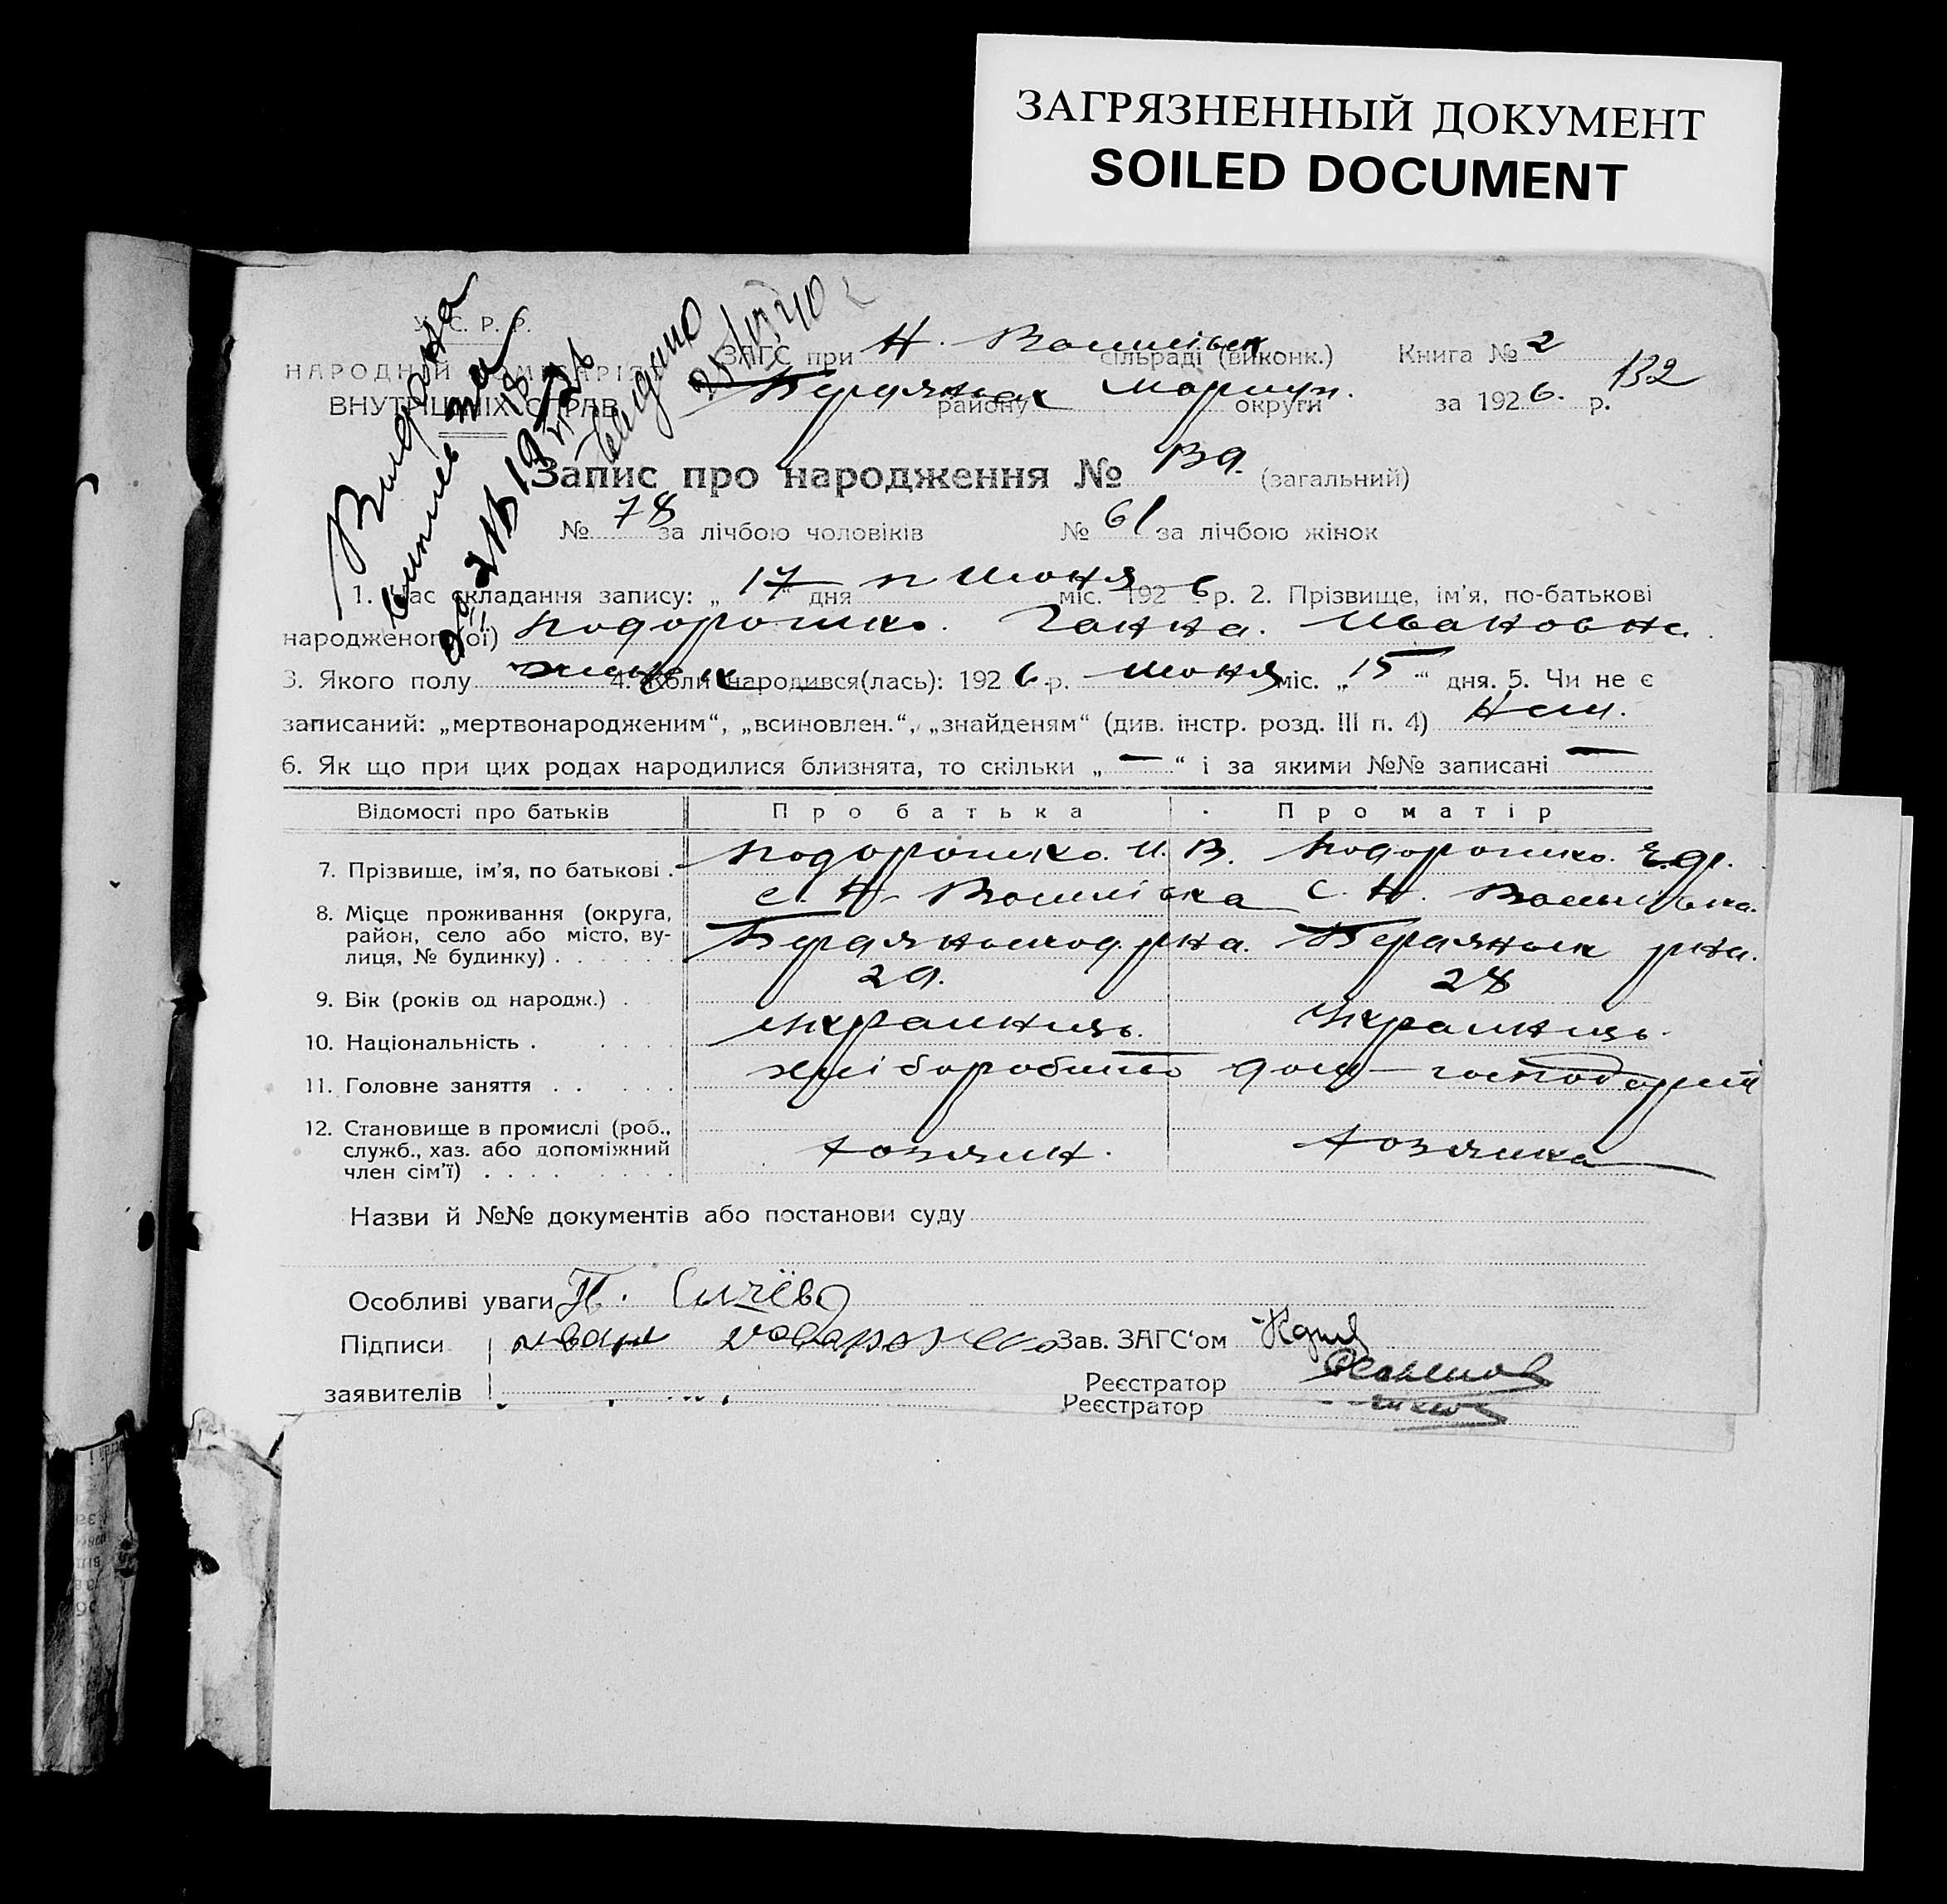 ЗАГРЯЗНЕННЫЙ ДОКУМЕНТ
SOILED DOCUMENT
У. С. Р. Р.
НАРОДНІЙ КОМІСАРІЯТ
ВНУТРІШНІХ СПРАВ
Видано
Видано
ЗАГС при Н. Василівськ сільраді (виконк.) Книга № 2
Бердянськ району Мариуп. округи за 1926. р. 132
Запис про народження № 139. (загальний)
№ 78 за лічбою чоловіків № 61 за лічбою жінок
1. Час складання запису: „ 17 “ дня июня міс. 1926 р. 2. Прізвище, ім'я, по-батькові
народженого(ої) Подорошко. Ганна. Ивановна.
3. Якого полу 4. Коли народився(лась): 1926 р. июня міс. „ 15 “ дня. 5. Чи не є
записаний: „мертвонародженим“, „всиновлен.“, „знайденям“ (див. інстр. розд. III п. 4) Ні
6. Як що при цих родах народилися близнята, то скільки „ — “ і за якими №№ записані —
Відомості про батьків Про батька Про матір
7. Прізвище, ім'я, по батькові . Подорошко. И. В. Подорошко.
8. Місце проживання (округа, район, село або місто, вулиця, № будинку) . . . . . . с. Н-Василівка С. Н. Василівка.
Бердянського р-на. Бердянськ р-на.
9. Вік (років од народж.) . 29. 28
10. Національність . . . . . українець. Українець.
11. Головне заняття . . . . . хлібороб дом-господар
12. Становище в промислі (роб., служб., хаз. або допоміжний член сім'ї) . . . . . . . . . хозяин. хозяйка
Назви й №№ документів або постанови суду
Особливі уваги
Підписи Зав. ЗАГС'ом
заявителів Реєстратор
Реєстратор